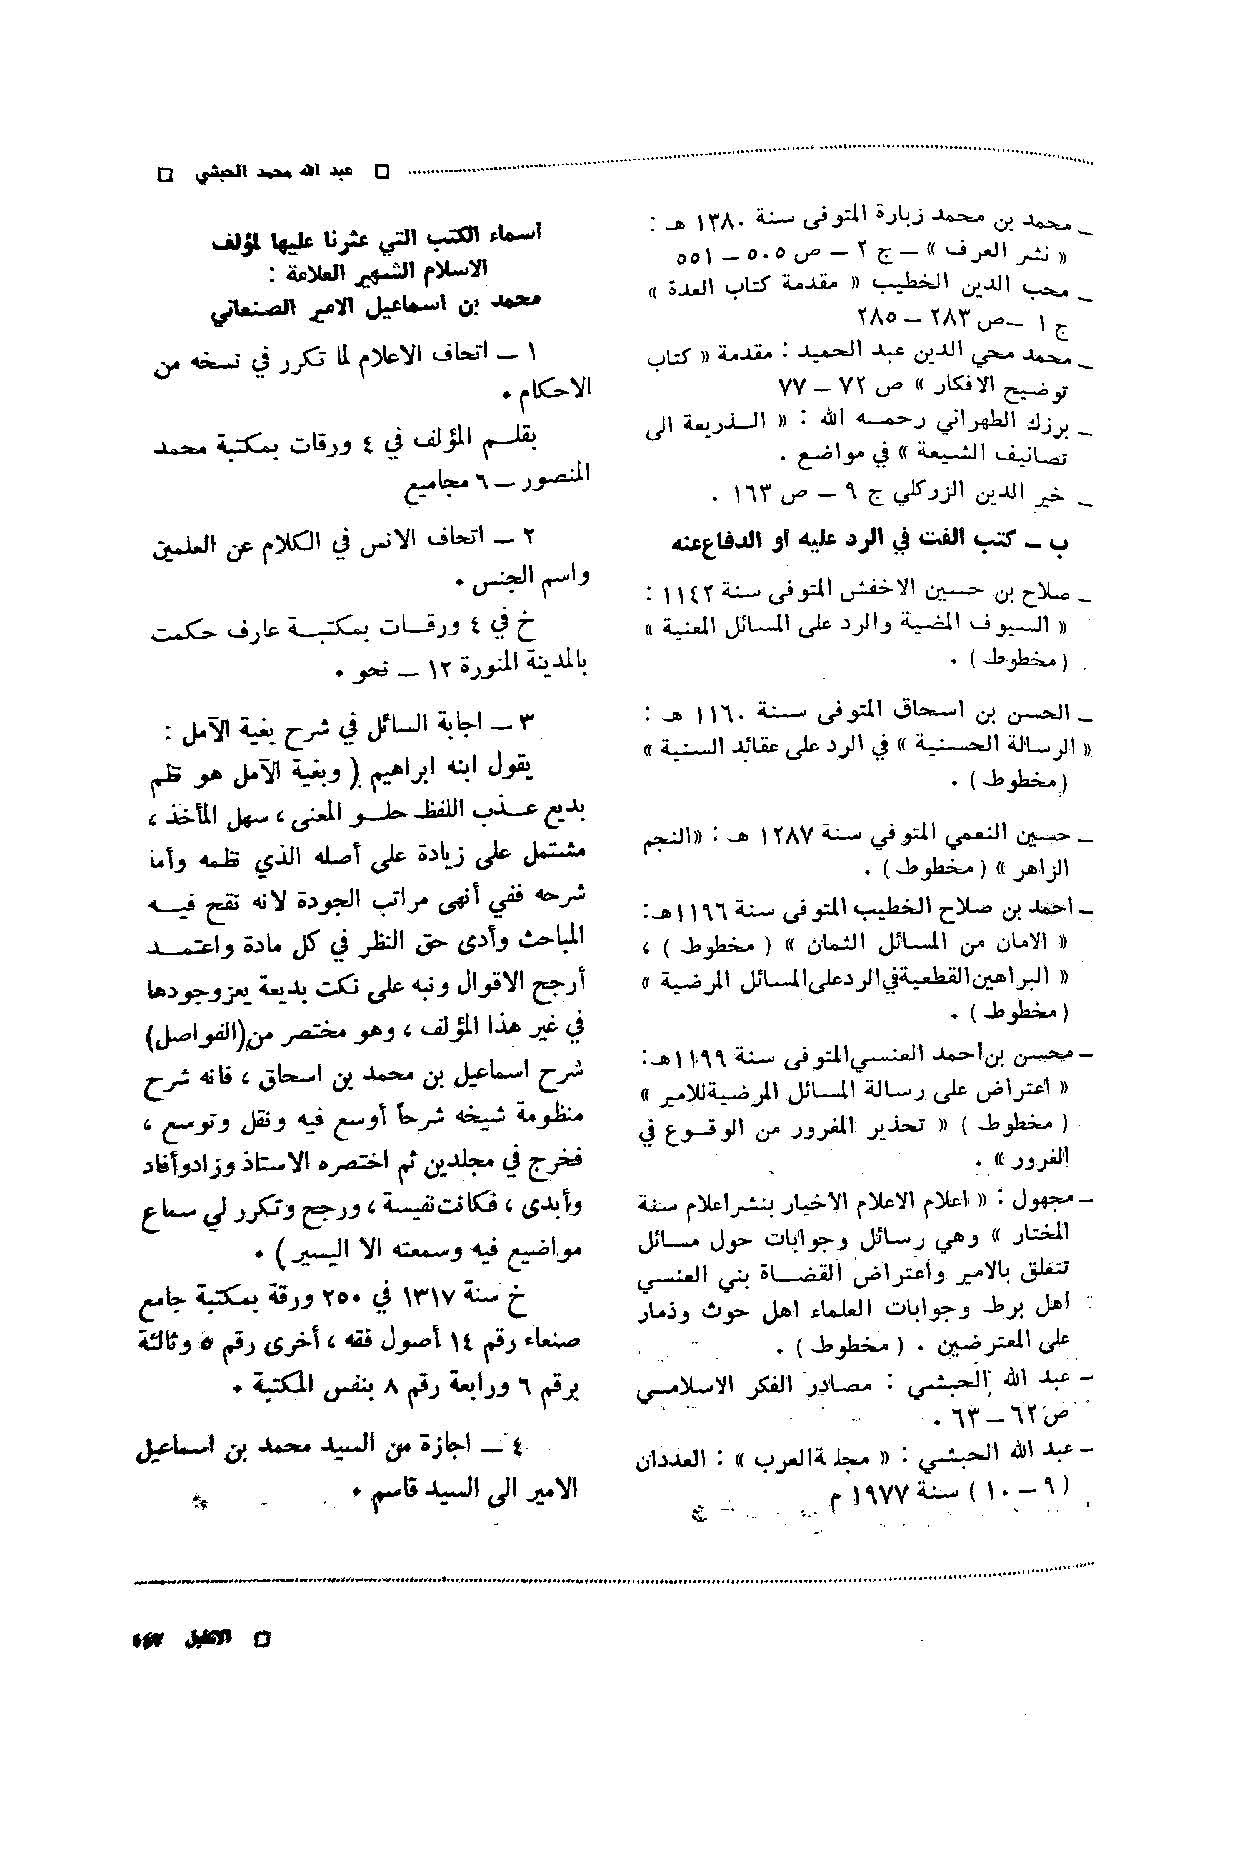 □ عبد الله محمد الحبشي □
_ محمد بن محمد زبارة المتوفى سنة ١٣٨٠ هـ :
« نشر العرف » – ج ٢ – ص ٥٠٥ – ٥٥١
_ محب الدين الخطيب « مقدمة كتاب العدة »
ج ١ –ص ٢٨٣ – ٢٨٥
_ محمد محي الدين عبد الحميد : مقدمة « كتاب
توضيح الافكار » ص ٧٢ – ٧٧
_ برزك الطهراني رحمـه الله : « الـذريعة الى
تصانيف الشيعة » في مواضع .
_ خير الدين الزركلي ج ٩ – ص ١٦٣ .
ب – كتب الفت في الرد عليه او الدفاع عنه
– صلاح بن حسين الاخفش المتوفى سنة ١١٤٢ :
« السيوف المضية والرد على المسائل المعنية »
( مخطوط ) .
– الحسن بن اسحاق المتوفى سنة ١١٦٠ هـ :
« الرسالة الحسنية » في الرد على عقائد السنية »
(مخطوط ) .
– حسين النعمي المتوفي سنة ١٢٨٧ هـ : «النجم
الزاهر » (مخطوط ) .
– احمد بن صلاح الخطيب المتوفى سنة ١١٩٦هـ:
« الامان من المسائل الثمان » ( مخطوط ) ،
« البراهين القطعية في الرد على المسائل المرضية »
( مخطوط ) .
– محسن بن احمد العنسي المتوفى سنة ١١٩٩هـ:
« اعتراض على رسالة المسائل المرضية للامير »
( مخطوط ) « تحذير المغرور من الوقـوع في
الغرور » .
– مجهول : « اعلام الاعلام الاخيار بنشر اعلام سنة
المختار » وهي رسائل وجوابات حول مسائل
تتعلق بالامير واعتراض القضـاة بني العنسي
اهل برط وجوابات العلماء اهل حوث وذمار
على المعترضين . ( مخطوط ) .
– عبد الله الحبشي : مصادر الفكر الاسلامـي
ص ٦٢ – ٦٣ .
– عبد الله الحبشي : « مجلة العرب » : العددان
( ٩ – ١٠ ) سنة ١٩٧٧ م
اسماء الكتب التي عثرنا عليها لمؤلف
الاسلام الشهير العلامة :
محمد بن اسماعيل الامير الصنعاني
١ – اتحاف الاعلام لما تكرر في نسخه من
الاحكام .
بقلـم المؤلف في ٤ ورقات بمكتبة محمد
المنصور – ٦ مجاميع
٢ – اتحاف الانس في الكلام عن العلمين
واسم الجنس .
خ في ٤ ورقـات بمكتبـة عارف حكمت
بالمدينة المنورة ١٢ – نحو .
٣ – اجابة السائل في شرح بغية الآمل :
يقول ابنه ابراهيم ( وبغية الآمل هو نظم
بديع عـذب اللفظ حلـو المعنى ، سهل المأخذ ،
مشتمل على زيادة على أصله الذي نظمه وأما
شرحه ففي أنهى مراتب الجودة لانه نقح فيـه
المباحث وأدى حق النظر في كل مادة واعتمـد
أرجح الاقوال ونبه على نكت بديعة يعز وجودها
في غير هذا المؤلف ، وهو مختصر من (الفواصل)
شرح اسماعيل بن محمد بن اسحاق ، فانه شرح
منظومة شيخه شرحاً أوسع فيه ونقل وتوسع ،
فخرج في مجلدين ثم اختصره الاستاذ وزاد وأفاد
وأبدى ، فكانت نفيسة ، ورجح وتكرر لي سماع
مواضيع فيه وسمعته الا اليسير ) .
خ سنة ١٣١٧ في ٢٥٠ ورقة بمكتبة جامع
صنعاء رقم ١٤ أصول فقه ، أخرى رقم ٥ وثالثة
برقم ٦ ورابعة رقم ٨ بنفس المكتبة .
٤ – اجازة من السيد محمد بن اسماعيل
الامير الى السيد قاسم .
□ الاكليل ١٤٧